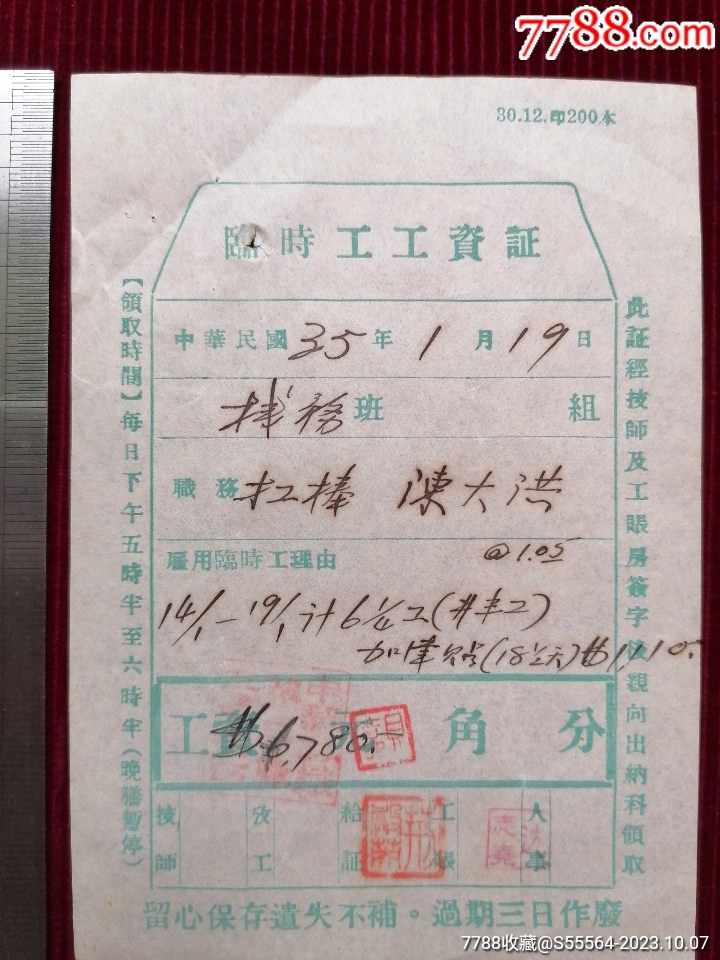 7788.com
30.12.印200本
臨時工工資証
中華民國35年1月19日
班 組
職務 扛棒 陳大洪
雇用臨時工理由 @1.05
14/1－19/1計6
(18½天)
工資 元角分
6,780.-
技師 攷工 給証 工賬 人事
留心保存遺失不補。過期三日作廢
【領取時間】每日下午五時半至六時半(晚膳暫停)
此証經技師及工賬房簽字後親向出納科領取
7788收藏@S55564-2023.10.07